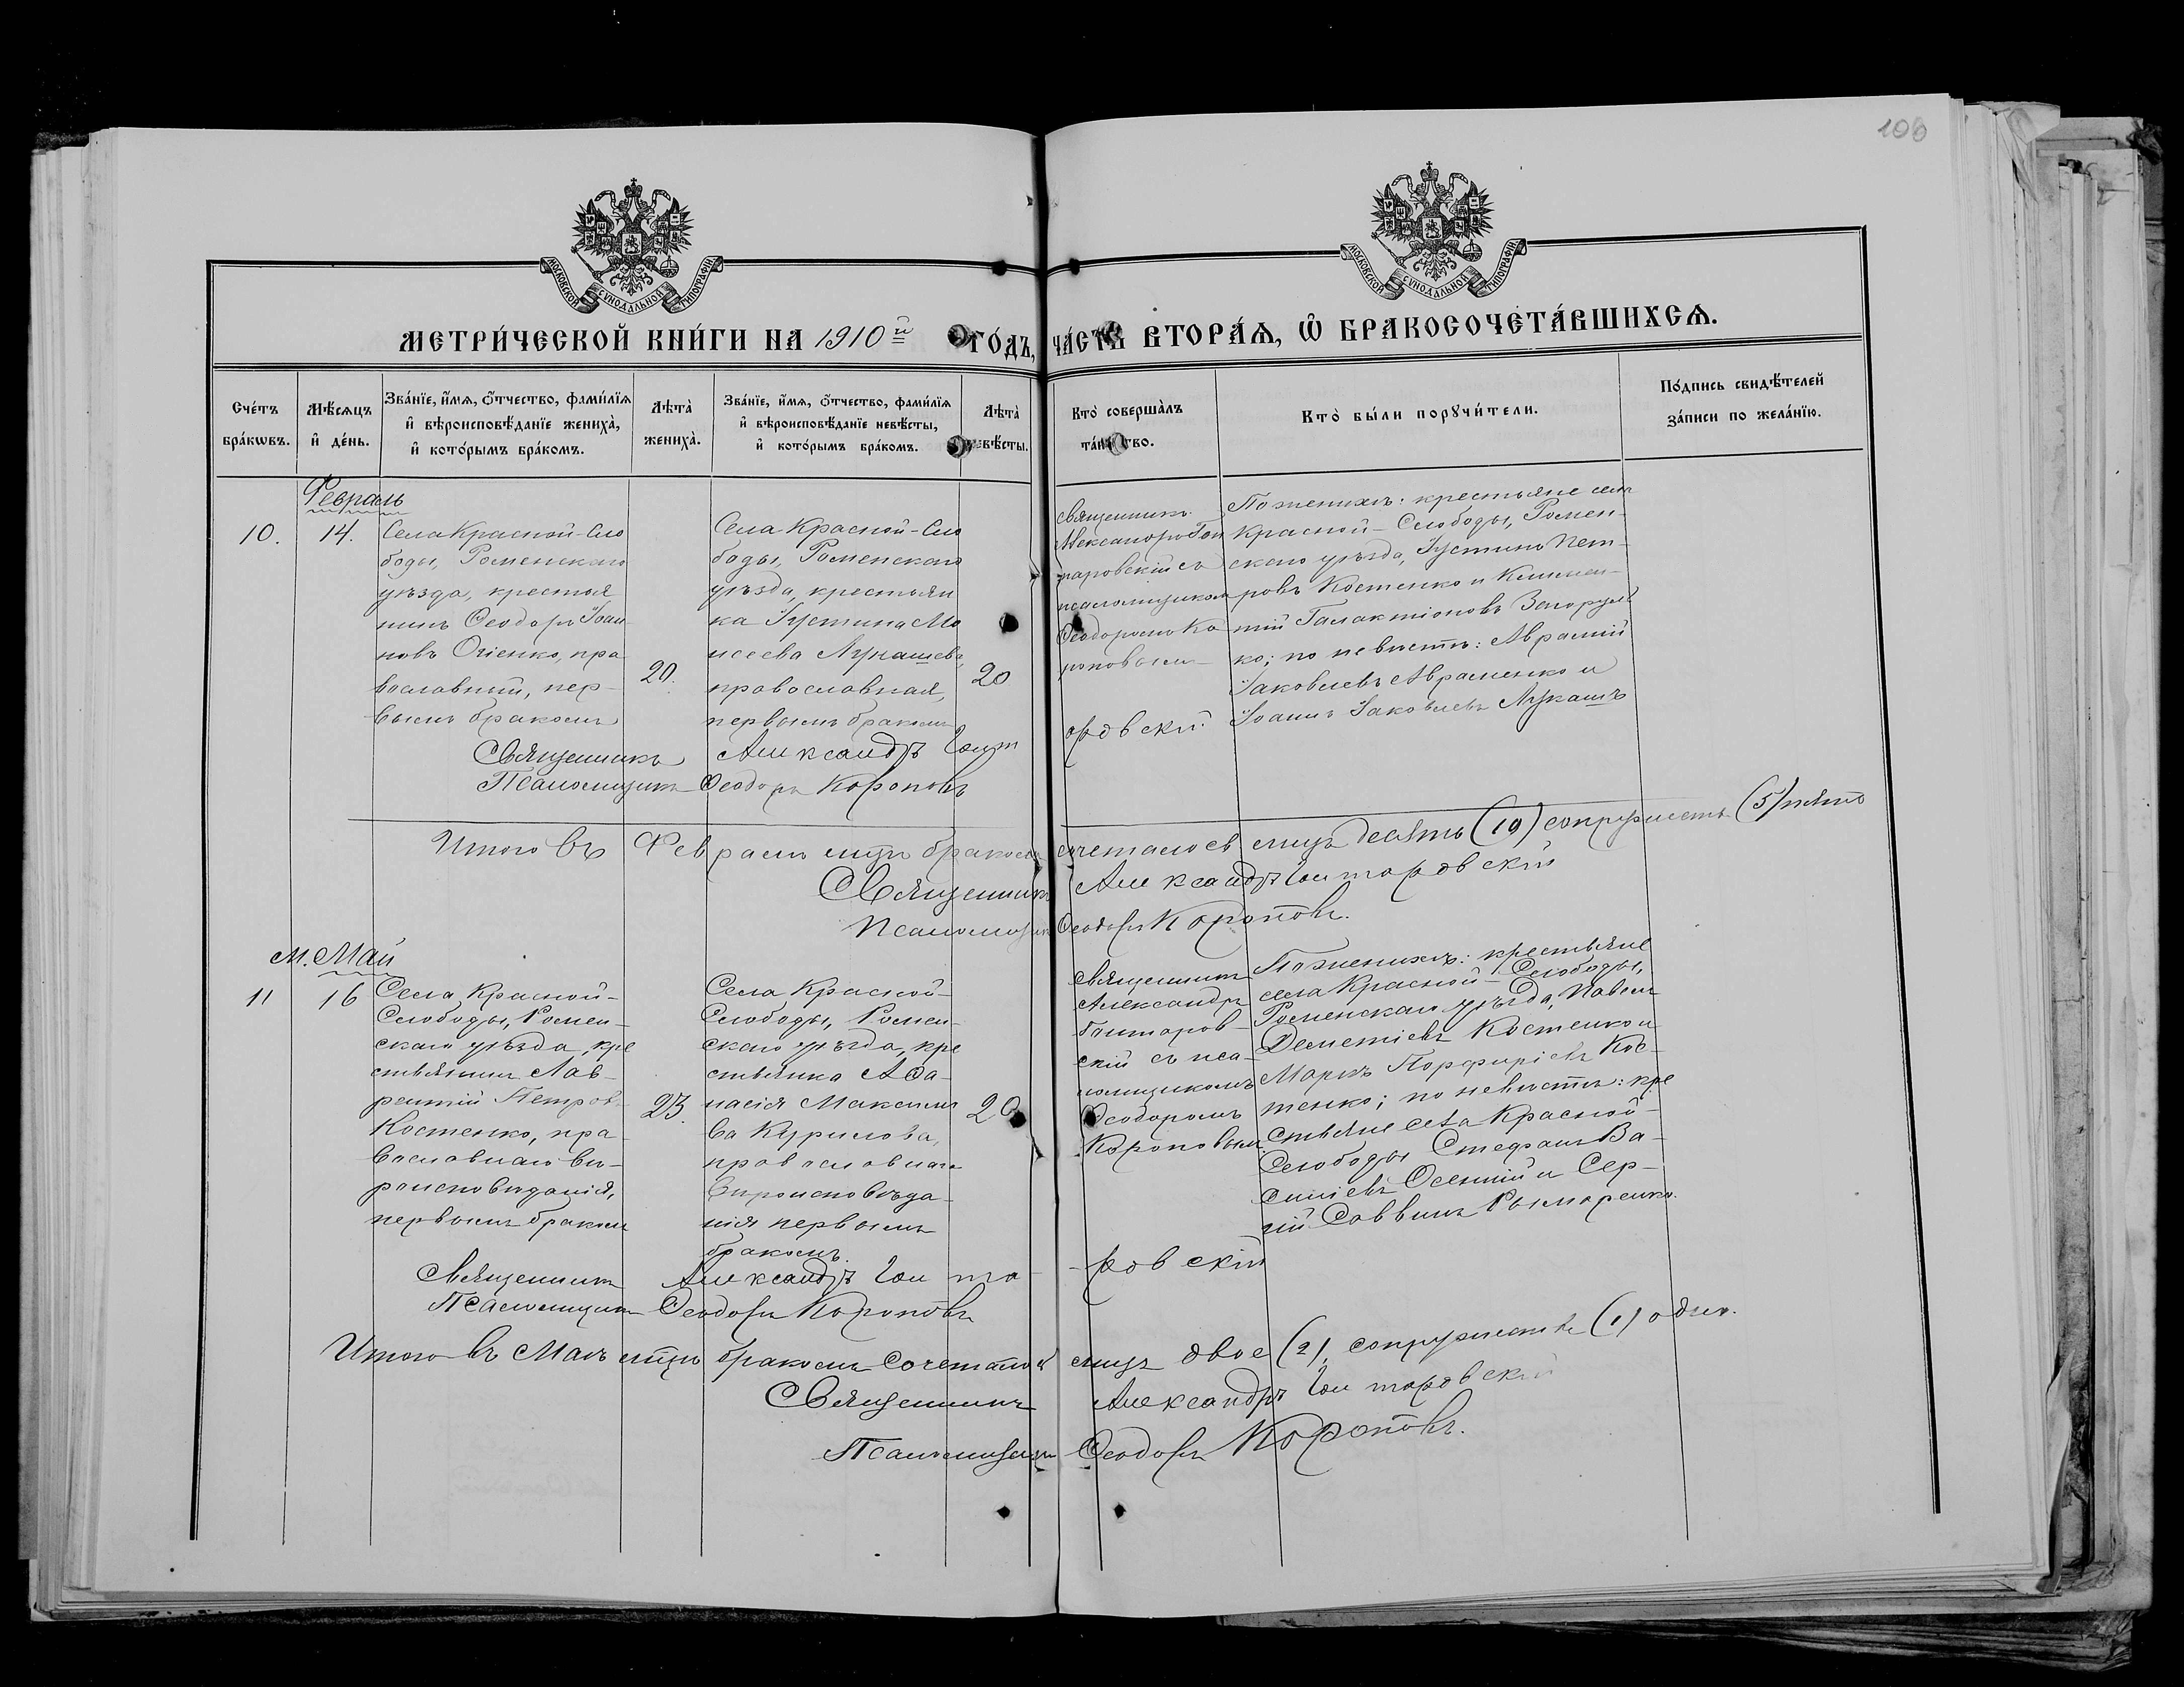 106
МОСКОВСКОЙ СѴНОДАЛЬНОЙ ТИПОГРАФІИ
МОСКОВСКОЙ СѴНОДАЛЬНОЙ ТИПОГРАФІИ
МЕТРИ́ЧЕСКОЙ КНИ́ГИ НА 1910й ГО́ДЪ, ЧА́СТЬ ВТОРА́Ѧ, Ѿ БРАКОСОЧЕТА́ВШИХСѦ.
Сче́тъ
бра́кѡвъ.
Мѣ́сѧцъ
и҆ де́нь.
Зва́нїе, и҆́мѧ, ѻ҆́тчество, фами́лїѧ
и҆ вѣроисповѣ́данїе женихà,
и҆ кото́рымъ бра́комъ.
Лѣтà
женихà.
Зва́нїе, и҆́мѧ, ѻ҆́тчество, фами́лїѧ
и҆ вѣроисповѣ́данїе невѣ́сты,
и҆ кото́рымъ бра́комъ.
Лѣтà
невѣ́сты.
Кто̀ соверша́лъ
та́инство.
Кто̀ бы́ли порꙋчи́тели.
По́дпись свидѣ́телей
за́писи по жела́нїю.
Февраль
10.
14.
Села Красной-Сло
боды, Роменскаго
уѣзда, крестья
нинъ Ѳеодоръ Іоан
новъ Огіенко, пра
вославный, пер-
вымъ бракомъ
20.
Села Красной-Сло
боды, Роменскаго
уѣзда, крестьян
ка Іустина Мо
исеева Лукашева,
православная,
первымъ бракомъ
20
Священникъ
Александръ Гон
таровскій съ
псаломщикомъ
Ѳеодоромъ Ко
роповымъ
По женихѣ: крестьяне села
Красной-Слободы, Ромен-
скаго уѣзда, Іустинъ Пет-
ровъ Костенко и Климен-
тій Галактіоновъ Загоруль
ко; по невѣстѣ: Аврамій
Іаковлевъ Авраменко и
Іоаннъ Іаковлевъ Лукашъ
Священникъ Александръ Гонтаровскій
Псаломщикъ Ѳеодоръ Короповъ
Итого въ Февралѣ мцѣ бракомъ сочеталось лицъ десять (10) супружествъ (5) пять
Священникъ Александръ Гонтаровскій
Псаломщикъ Ѳеодоръ Короповъ.
М. Май
11
16
Села Красной-
Слободы, Ромен-
скаго уѣзда, кре
стьянинъ Лав-
рентій Петровъ
Костенко, пра-
вославнаго вѣ-
роисповѣданія,
первымъ бракомъ
23.
Села Красной-
Слободы, Ромен-
скаго уѣзда, кре
стьянка Аѳа-
насія Максимо
ва Курилова,
православнаго
вѣроисповѣда-
нія первымъ
бракомъ.
20
Священникъ
Александръ
Гонтаров-
скій съ пса-
ломщикомъ
Ѳеодоромъ
Короповымъ.
По женихѣ: крестьяне
села Красной-Слободы,
Роменскаго уѣзда, Павелъ
Дементіевъ Костенко и
Маркъ Порфиріевъ Кос-
тенко; по невѣстѣ: кре
стьяне села Красной-
Слободы Стефанъ Ва-
силіевъ Осенній и Сер-
гій Саввинъ Рымаренко.
Священникъ Александръ Гонта-ровскій
Псаломщикъ Ѳеодоръ Короповъ
Итого въ Маѣ мцѣ бракомъ сочеталось лицъ двое (2), супружествъ (1) одно.
Священникъ Александръ Гонтаровскій
Псаломщикъ Ѳеодоръ Короповъ.